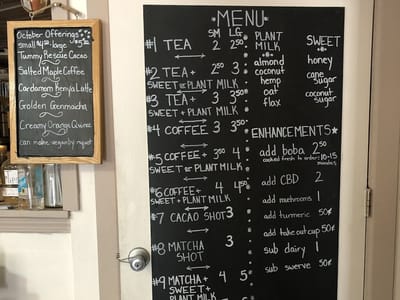 October Offerings
small $4.50 large $5.50
Tummy Rescue Cacao
Salted Maple Coffee
Cardamom Kenya Latte
Golden Genmacha
Creamy Orange Quince
can make vegan by request
MENU
SM LG
#1 TEA 2 2.50
#2 TEA + 2.50 3
SWEET or PLANT MILK
#3 TEA + 3 3.50
SWEET + PLANT MILK
#4 COFFEE 3 3.50
#5 COFFEE + 3.50 4
SWEET or PLANT MILK
#6 COFFEE + 4 4.50
SWEET + PLANT MILK
#7 CACAO SHOT 3
#8 MATCHA 3
SHOT
#9 MATCHA + 4 5
SWEET +
PLANT MILK
PLANT
MILK
almond
coconut
hemp
oat
flax
SWEET
honey
cane
sugar
coconut
sugar
ENHANCEMENTS
add boba 2.50
cooked fresh to order: 10-15
minutes
add CBD 2
add mushrooms 1
add turmeric 50¢
add take out cup 50¢
sub dairy 1
sub swerve 50¢